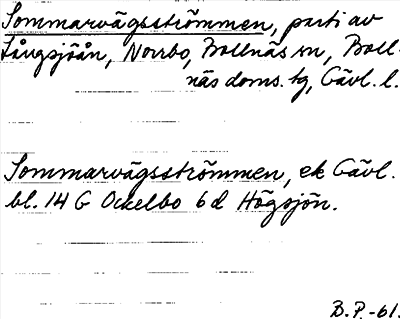 Sommarvägsströmmen, parti av
Långsjöån, Norrbo, Bollnäs sn, Boll-
näs doms. tg, Gävl. l.
Sommarvägsströmmen, ek Gävl.
bl. 14 G Ockelbo 6 d Högsjön.
B.P.-61.